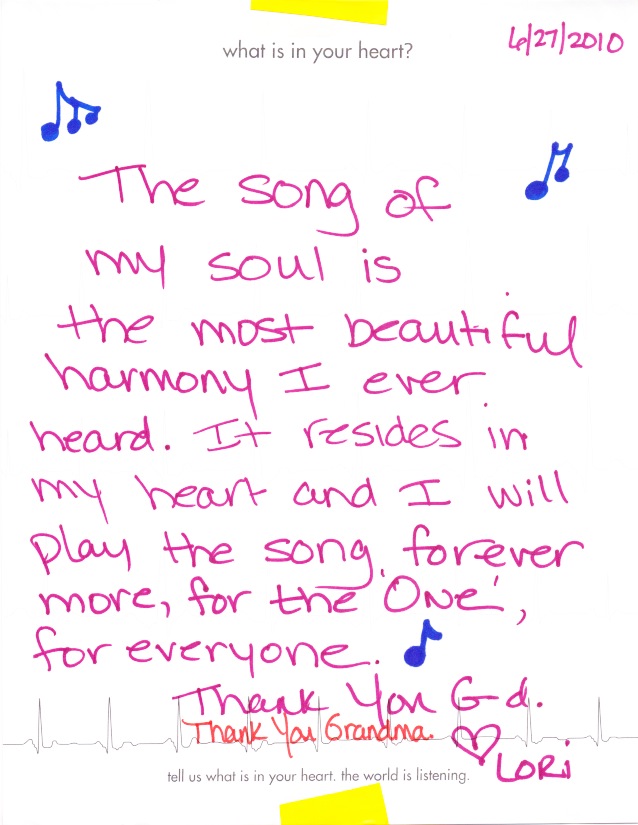 what is in your heart?
6/27/2010
The song of
my soul is
the most beautiful
harmony I ever
heard. It resides in
my heart and I will
play the song, forever
more, for the 'One',
for everyone.
Thank You G-d.
Thank You Grandma.
Lori
tell us what is in your heart. the world is listening.